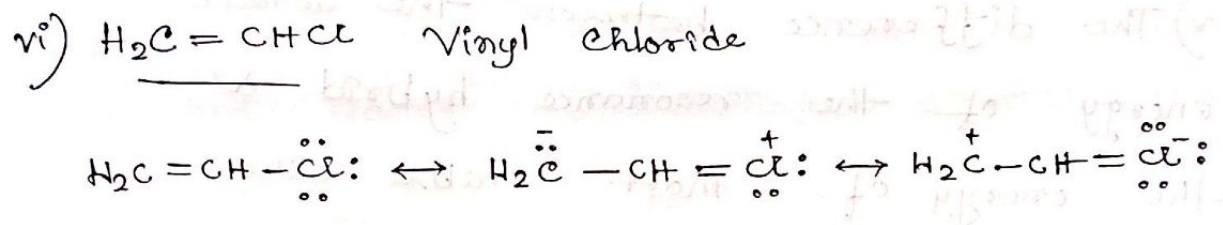 vi) H₂C = CHCl Vinyl Chloride
H₂C = CH – C̈l: ↔ H₂C̄̈ – CH = C⁺l: ↔ H₂C⁺ – CH = C̈l⁻: